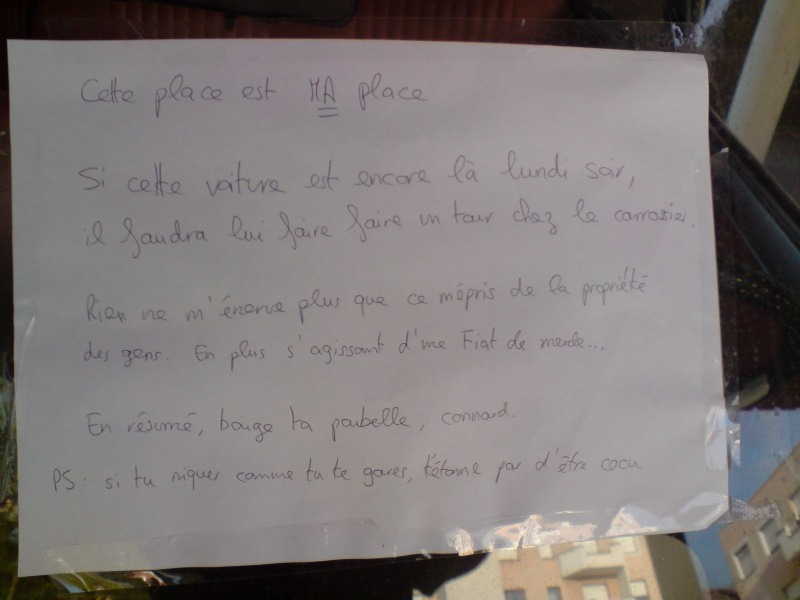 Cette place est MA place
Si cette voiture est encore là lundi soir,
il faudra lui faire faire un tour chez le carrosier.
Rien ne m'énerve plus que ce mépris de la propriété
des gens. En plus s'agissant d'une Fiat de merde...
En résumé, bouge ta poubelle, connard.
PS: si tu niques comme tu te gares, t'étonne pas d'être cocu